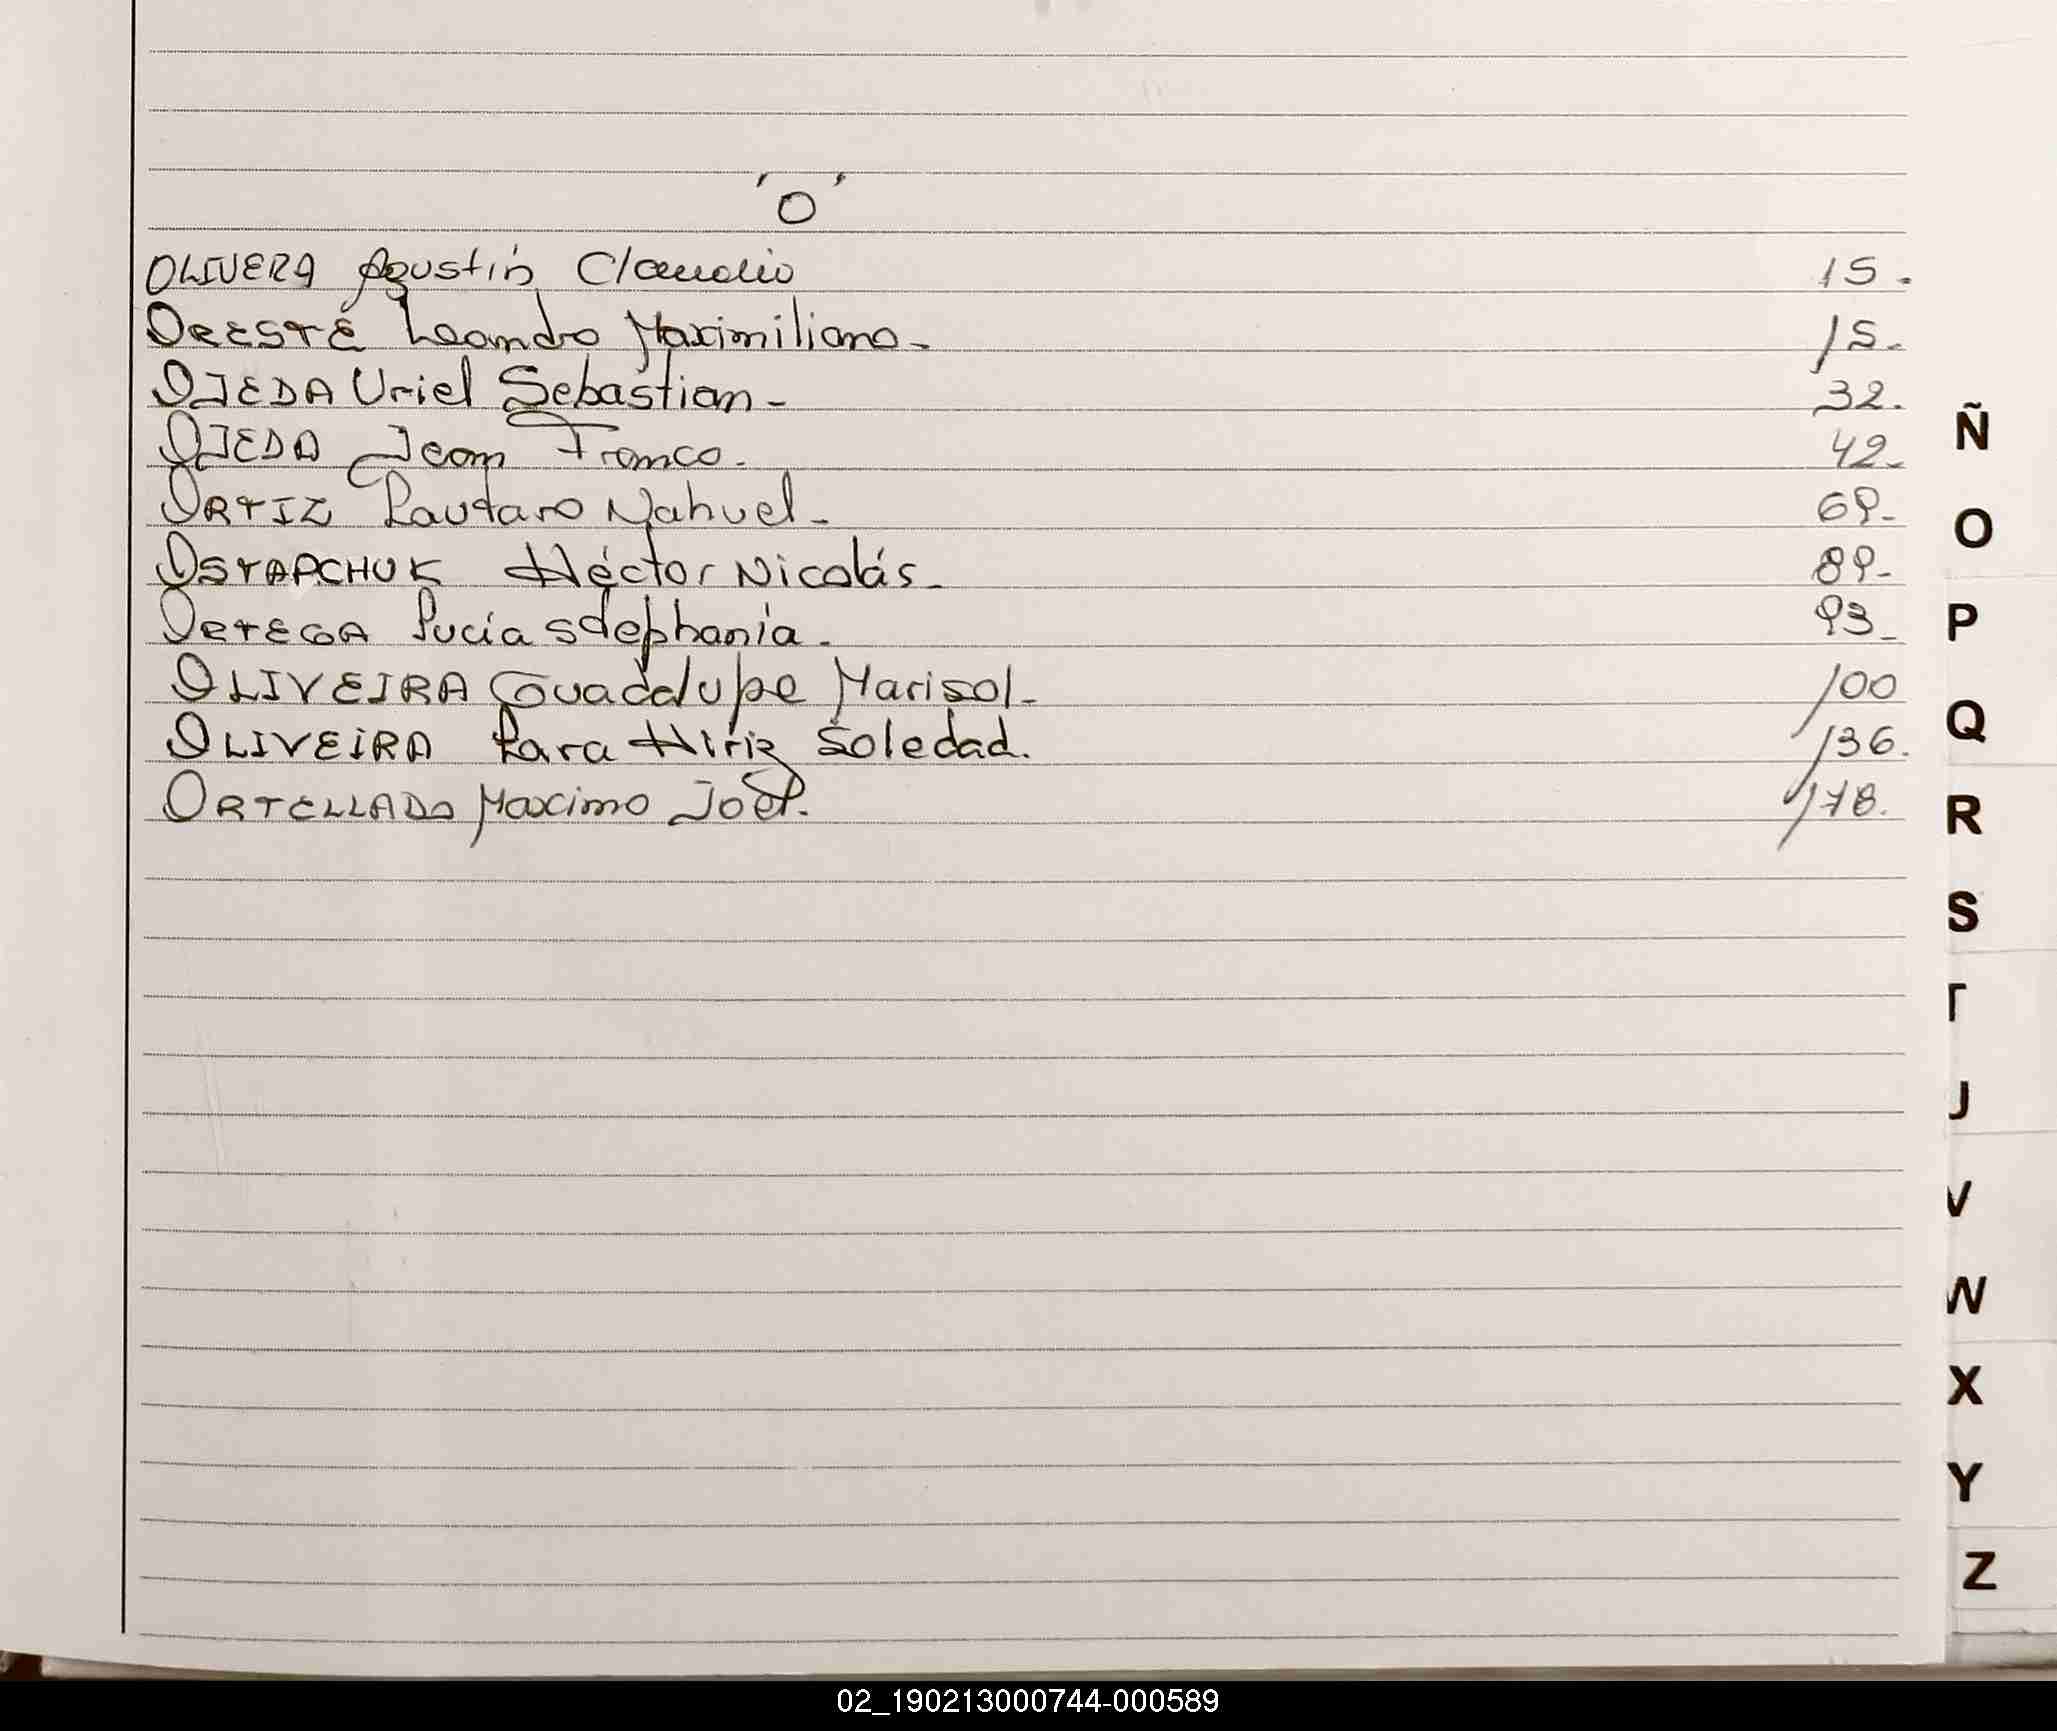 'O'
OLIVERA Agustín Claudio 15.
ORESTE Leandro Maximiliano- 15-
OJEDA Uriel Sebastian- 32.
OJEDA Jean Franco- 42-
ORTIZ Lautaro Nahuel- 69-
OSTAPCHUK Héctor Nicolás- 89-
ORTEGA Lucía Stephanía- 93-
OLIVEIRA Guadalupe Marisol- 100
OLIVEIRA Lara Hiriz Soledad. 136.
ORTELLADO Maximo Joel. 178.
Ñ
O
P
Q
R
S
T
U
V
W
X
Y
Z
02_190213000744-000589